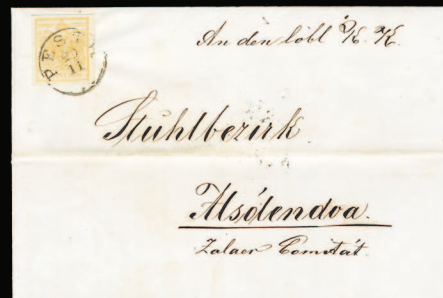 PEST
11
An den löbl K. K.
Stuhlbezirk
Alsólendva.
Zalaer Comitát